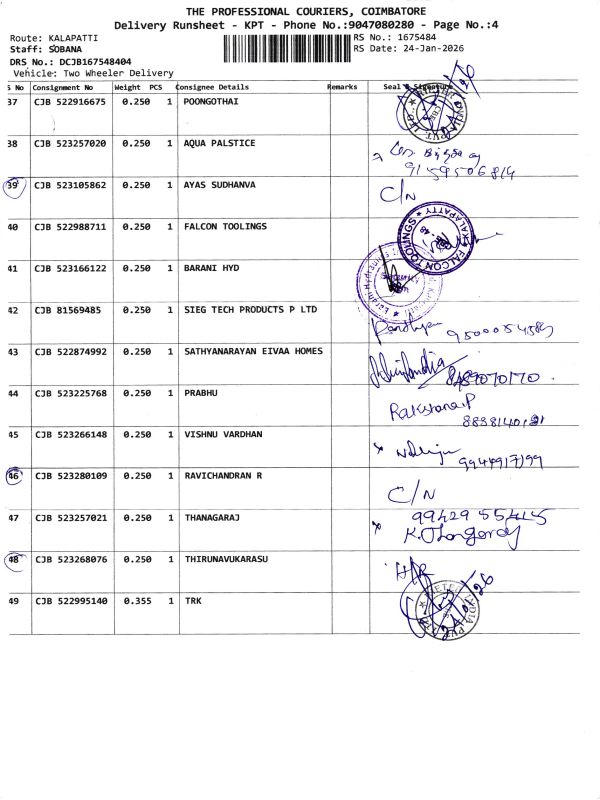 THE PROFESSIONAL COURIERS, COIMBATORE
Delivery Runsheet - KPT - Phone No.:9047080280 - Page No.:4
Route: KALAPATTI RS No.: 1675484
Staff: SOBANA RS Date: 24-Jan-2026
DRS No.: DCJB167548404
Vehicle: Two Wheeler Delivery
S No Consignment No Weight PCS Consignee Details Remarks Seal & Signature
37 CJB 522916675 0.250 1 POONGOTHAI
38 CJB 523257020 0.250 1 AQUA PALSTICE
9159506814
39 CJB 523105862 0.250 1 AYAS SUDHANVA C/N
40 CJB 522988711 0.250 1 FALCON TOOLINGS
FALCON TOOLINGS KALAPATTY
41 CJB 523166122 0.250 1 BARANI HYD
Security
42 CJB 81569485 0.250 1 SIEG TECH PRODUCTS P LTD
43 CJB 522874992 0.250 1 SATHYANARAYAN EIVAA HOMES
8489070170
44 CJB 523225768 0.250 1 PRABHU
45 CJB 523266148 0.250 1 VISHNU VARDHAN
46 CJB 523280109 0.250 1 RAVICHANDRAN R C/N
47 CJB 523257021 0.250 1 THANAGARAJ 99429 55415
48 CJB 523268076 0.250 1 THIRUNAVUKARASU
49 CJB 522995140 0.355 1 TRK